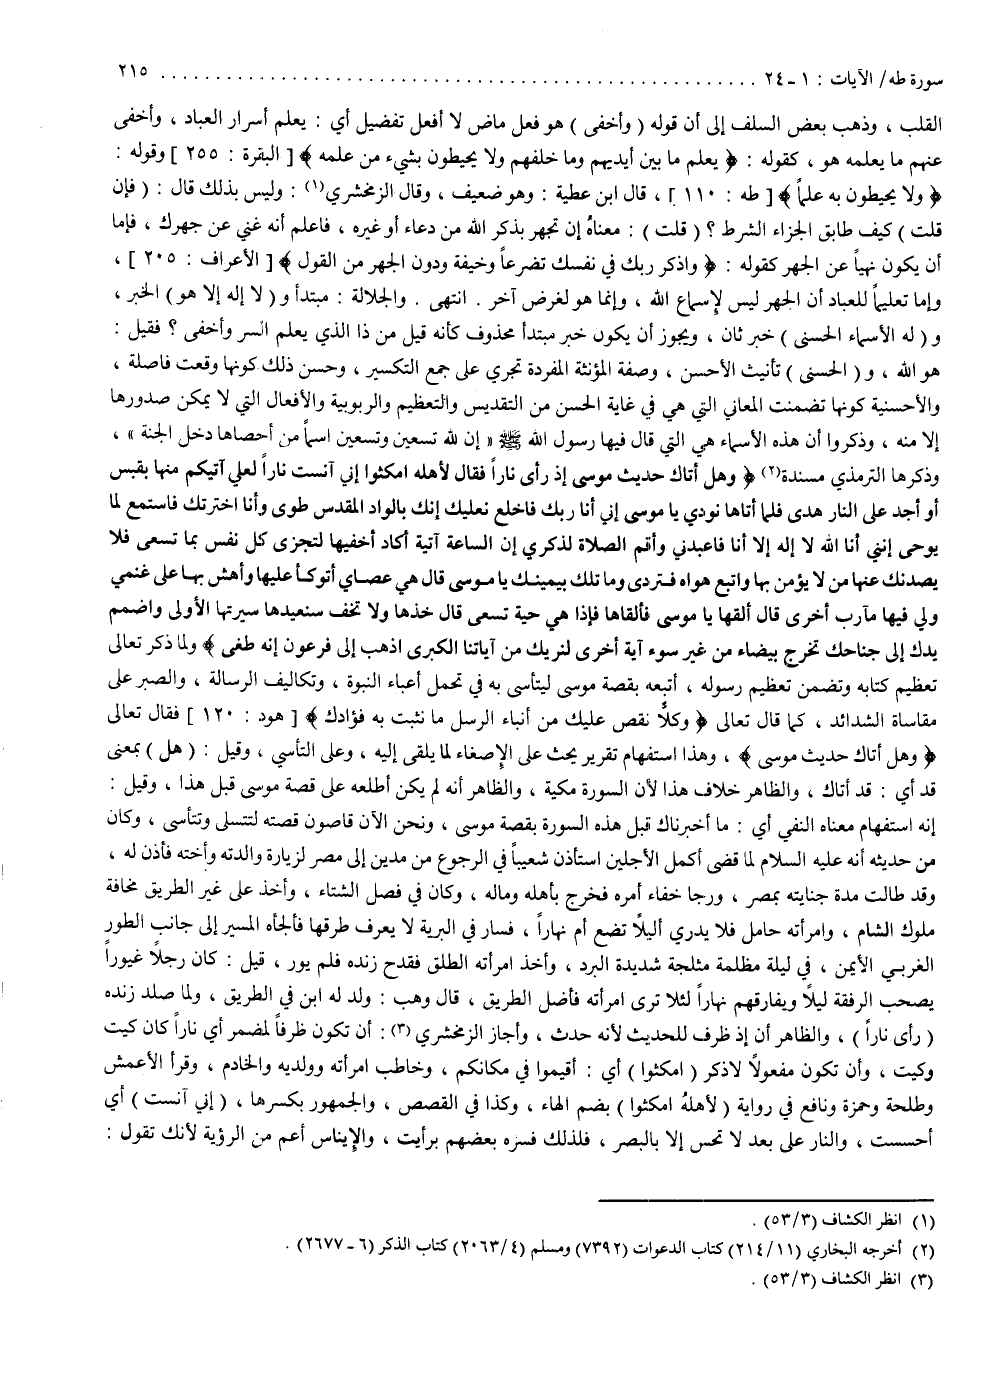 سورة طه/ الآيات : ١ ـ ٢٤ . . . . . . . . . . . . . . . . . . . . . . . . . . . . . . . . . . . . . . . . . . . . . ٢١٥
القلب ، وذهب بعض السلف إلى أن قوله ( وأخفى ) هو فعل ماض لا أفعل تفضيل أي : يعلم أسرار العباد ، وأخفى
عنهم ما يعلمه هو ، كقوله : ﴿ يعلم ما بين أيديهم وما خلفهم ولا يحيطون بشيء من علمه ﴾ [ البقرة : ٢٥٥ ] وقوله :
﴿ ولا يحيطون به علماً ﴾ [ طه : ١١٠ ] ، قال ابن عطية : وهو ضعيف ، وقال الزمخشري(١) : وليس بذلك قال : ( فإن
قلت ) كيف طابق الجزاء الشرط ؟ ( قلت ) : معناهُ إن تجهر بذكر الله من دعاء أو غيره ، فاعلم أنه غني عن جهرك ، فإما
أن يكون نهياً عن الجهر كقوله : ﴿ واذكر ربك في نفسك تضرعاً وخيفة ودون الجهر من القول ﴾ [ الأعراف : ٢٠٥ ] ،
وإما تعليماً للعباد أن الجهر ليس لإسماع الله ، وإنما هو لغرض آخر . انتهى . والجلالة : مبتدأ و ( لا إله إلا هو ) الخبر ،
و ( له الأسماء الحسنى ) خبر ثان ، ويجوز أن يكون خبر مبتدأ محذوف كأنه قيل من ذا الذي يعلم السر وأخفى ؟ فقيل :
هو الله ، و ( الحسنى ) تأنيث الأحسن ، وصفة المؤنثة المفردة تجري على جمع التكسير ، وحسن ذلك كونها وقعت فاصلة ،
والأحسنية كونها تضمنت المعاني التي هي في غاية الحسن من التقديس والتعظيم والربوبية والأفعال التي لا يمكن صدورها
إلا منه ، وذكروا أن هذه الأسماء هي التي قال فيها رسول الله ﷺ « إن لله تسعين وتسعين اسماً من أحصاها دخل الجنة » ،
وذكرها الترمذي مسندة(٢) ﴿ وهل أتاك حديث موسى إذ رأى ناراً فقال لأهله امكثوا إني آنست ناراً لعلي آتيكم منها بقبس
أو أجد على النار هدى فلما أتاها نودي يا موسى إني أنا ربك فاخلع نعليك إنك بالواد المقدس طوى وأنا اخترتك فاستمع لما
يوحى إنني أنا الله لا إله إلا أنا فاعبدني وأقم الصلاة لذكري إن الساعة آتية أكاد أخفيها لتجزى كل نفس بما تسعى فلا
يصدنك عنها من لا يؤمن بها واتبع هواه فتردى وما تلك بيمينك يا موسى قال هي عصاي أتوكأ عليها وأهش بها على غنمي
ولي فيها مآرب أخرى قال ألقها يا موسى فألقاها فإذا هي حية تسعى قال خذها ولا تخف سنعيدها سيرتها الأولى واضمم
يدك إلى جناحك تخرج بيضاء من غير سوء آية أخرى لنريك من آياتنا الكبرى اذهب إلى فرعون إنه طغى ﴾ ولما ذكر تعالى
تعظيم كتابه وتضمن تعظيم رسوله ، أتبعه بقصة موسى ليتأسى به في تحمل أعباء النبوة ، وتكاليف الرسالة ، والصبر على
مقاساة الشدائد ، كما قال تعالى ﴿ وكلًّا نقص عليك من أنباء الرسل ما نثبت به فؤادك ﴾ [ هود : ١٢٠ ] فقال تعالى
﴿ وهل أتاك حديث موسى ﴾ ، وهذا استفهام تقرير يحث على الإصغاء لما يلقى إليه ، وعلى التأسي ، وقيل : ( هل ) بمعنى
قد أي : قد أتاك ، والظاهر خلاف هذا لأن السورة مكية ، والظاهر أنه لم يكن أطلعه على قصة موسى قبل هذا ، وقيل :
إنه استفهام معناه النفي أي : ما أخبرناك قبل هذه السورة بقصة موسى ، ونحن الآن قاصون قصته لتتسلى وتتأسى ، وكان
من حديثه أنه عليه السلام لما قضى أكمل الأجلين استأذن شعيباً في الرجوع من مدين إلى مصر لزيارة والدته وأخته فأذن له ،
وقد طالت مدة جنايته بمصر ، ورجا خفاء أمره فخرج بأهله وماله ، وكان في فصل الشتاء ، وأخذ على غير الطريق مخافة
ملوك الشام ، وامرأته حامل فلا يدري أليلاً تضع أم نهاراً ، فسار في البرية لا يعرف طرقها فألجأه المسير إلى جانب الطور
الغربي الأيمن ، في ليلة مظلمة مثلجة شديدة البرد ، وأخذ امرأته الطلق فقدح زنده فلم يور ، قيل : كان رجلاً غيوراً
يصحب الرفقة ليلاً ويفارقهم نهاراً لئلا ترى امرأته فأضل الطريق ، قال وهب : ولد له ابن في الطريق ، ولما صلد زنده
( رأى ناراً ) ، والظاهر أن إذ ظرف للحديث لأنه حدث ، وأجاز الزمخشري (٣) : أن تكون ظرفاً لمضمر أي ناراً كان كيت
وكيت ، وأن تكون مفعولاً لاذكر ( امكثوا ) أي : أقيموا في مكانكم ، وخاطب امرأته وولديه والخادم ، وقرأ الأعمش
وطلحة وحمزة ونافع في رواية ( لأهلهُ امكثوا ) بضم الهاء ، وكذا في القصص ، والجمهور بكسرها ، ( إني آنست ) أي
أحسست ، والنار على بعد لا تحس إلا بالبصر ، فلذلك فسره بعضهم برأيت ، والإيناس أعم من الرؤية لأنك تقول :
(١) انظر الكشاف (٥٣/٣) .
(٢) أخرجه البخاري (٢١٤/١١) كتاب الدعوات (٧٣٩٢) ومسلم (٢٠٦٣/٤) كتاب الذكر (٦ ـ ٢٦٧٧) .
(٣) انظر الكشاف (٥٣/٣) .